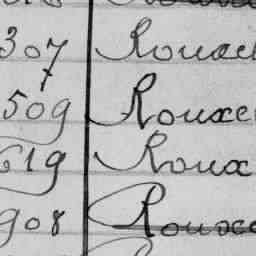 307 Rouxel
509 Rouxe
619 Roux
908 Rouxe